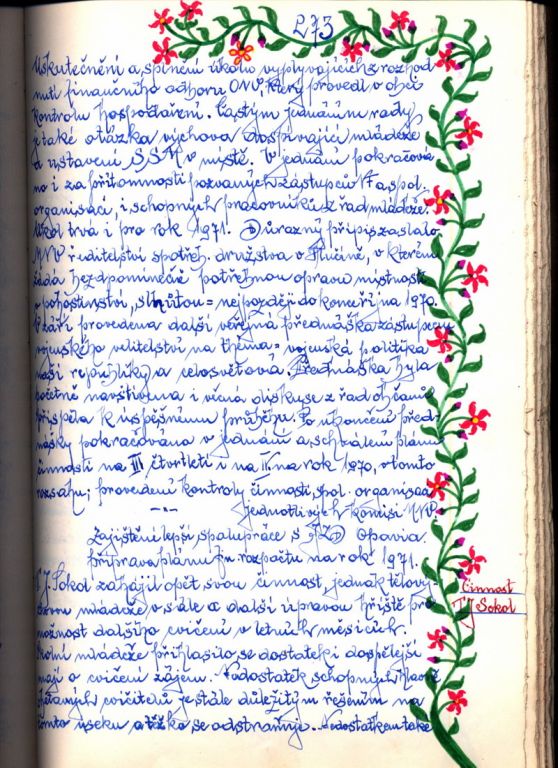 273
Uskutečnění a splnění úkolů vyplývajících z rozhod
nutí finančního odboru ONV, který provedl v obci
kontrolu hospodaření. Častým jednáním rady
je také otázka výchova dospívající mládeže
a ustavení SSM v místě. V jednání pokračová
no i za přítomnosti pozvaných zástupců spol.
organisací, i schopných pracovníků z řad mládeže.
Úkol trvá i pro rok 1971. Důrazný přípis zaslalo
MNV ředitelství spotřeb. družstva v Hlučíně, v kterém
žádá bezpodmínečně potřebnou opravu místnosti
pohostinství, = nejpozději do konce října 1970.
V září provedena další veřejná přednáška zástupcem
vojenského velitelství na thema = vojenská politika
naší republiky a celosvětová. Přednáška byla
početně navštívena i věcná diskuse z řad občanů
přispěla k úspěšnému průběhu. Po ukončení před
nášky pokračováno v jednání a schválení plánu
činnosti na III. čtvrtletí i na IV. na rok 1970, v tomto
rozsahu; provedení kontroly činnosti spol. organisací
-"- jednotlivých komisí MNV.
Zajištění lepší spolupráce s JZD Opavia.
příprava plánu fin. rozpočtu na rok 1971.
TJ. Sokol zahájil opět svou činnost, jednak tělový-
chovou mládeže v sále a další úpravou hřiště pro
možnost dalšího cvičení v letních měsících.
Školní mládeže přihlásilo se dostatek i dospělejší
mají o cvičení zájem. Nedostatek schopných hlavně
cvičitelů je stále důležitým řešením na
tomto úseku a těžko se odstraňuje. Nedostatkem také
činnost
TJ Sokol